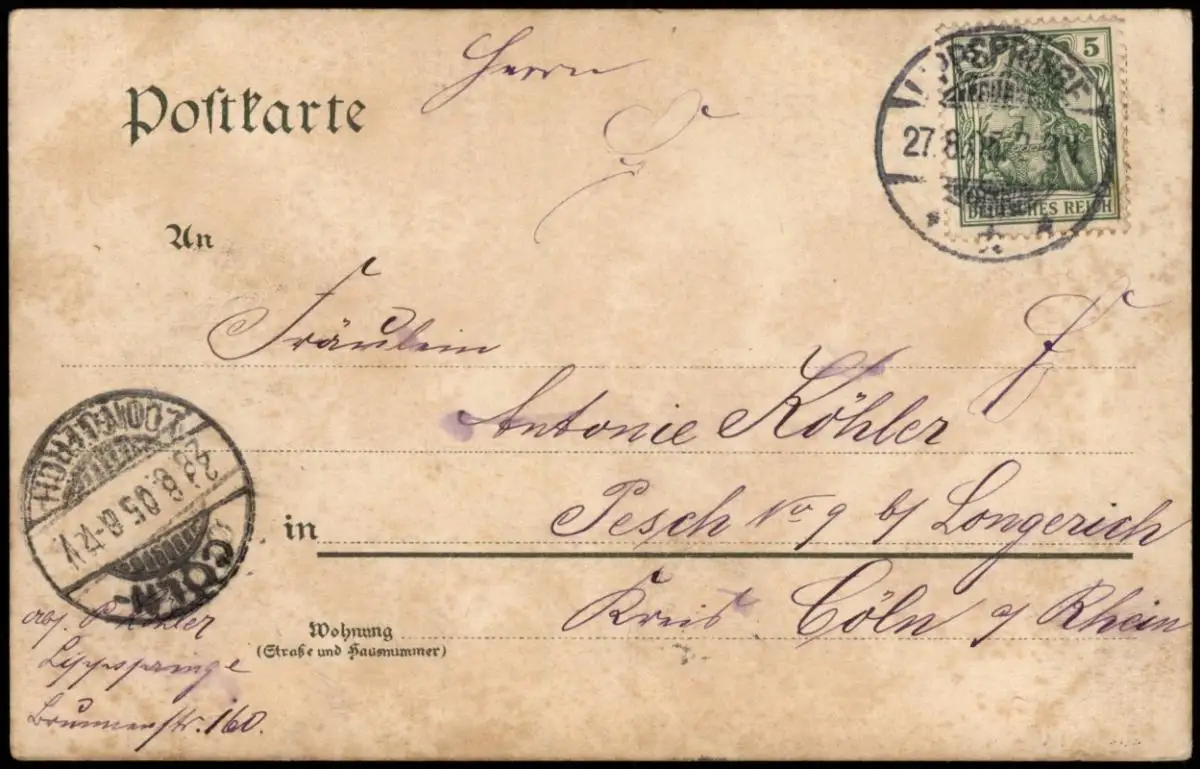 Postkarte
Herrn
5
LIPPSPRINGE
27.8.05.
DEUTSCHES REICH
An
Fräulein
Antonie Köhler
Pesch No 9 b/ Longerich
in
Kreis Cöln a/ Rhein
Wohnung
(Straße und Hausnummer)
CÖLN-
28.8.05.8-12V.
LONGERICH
abs. P Köhler
Lippspringe
Brunnenstr. 160.